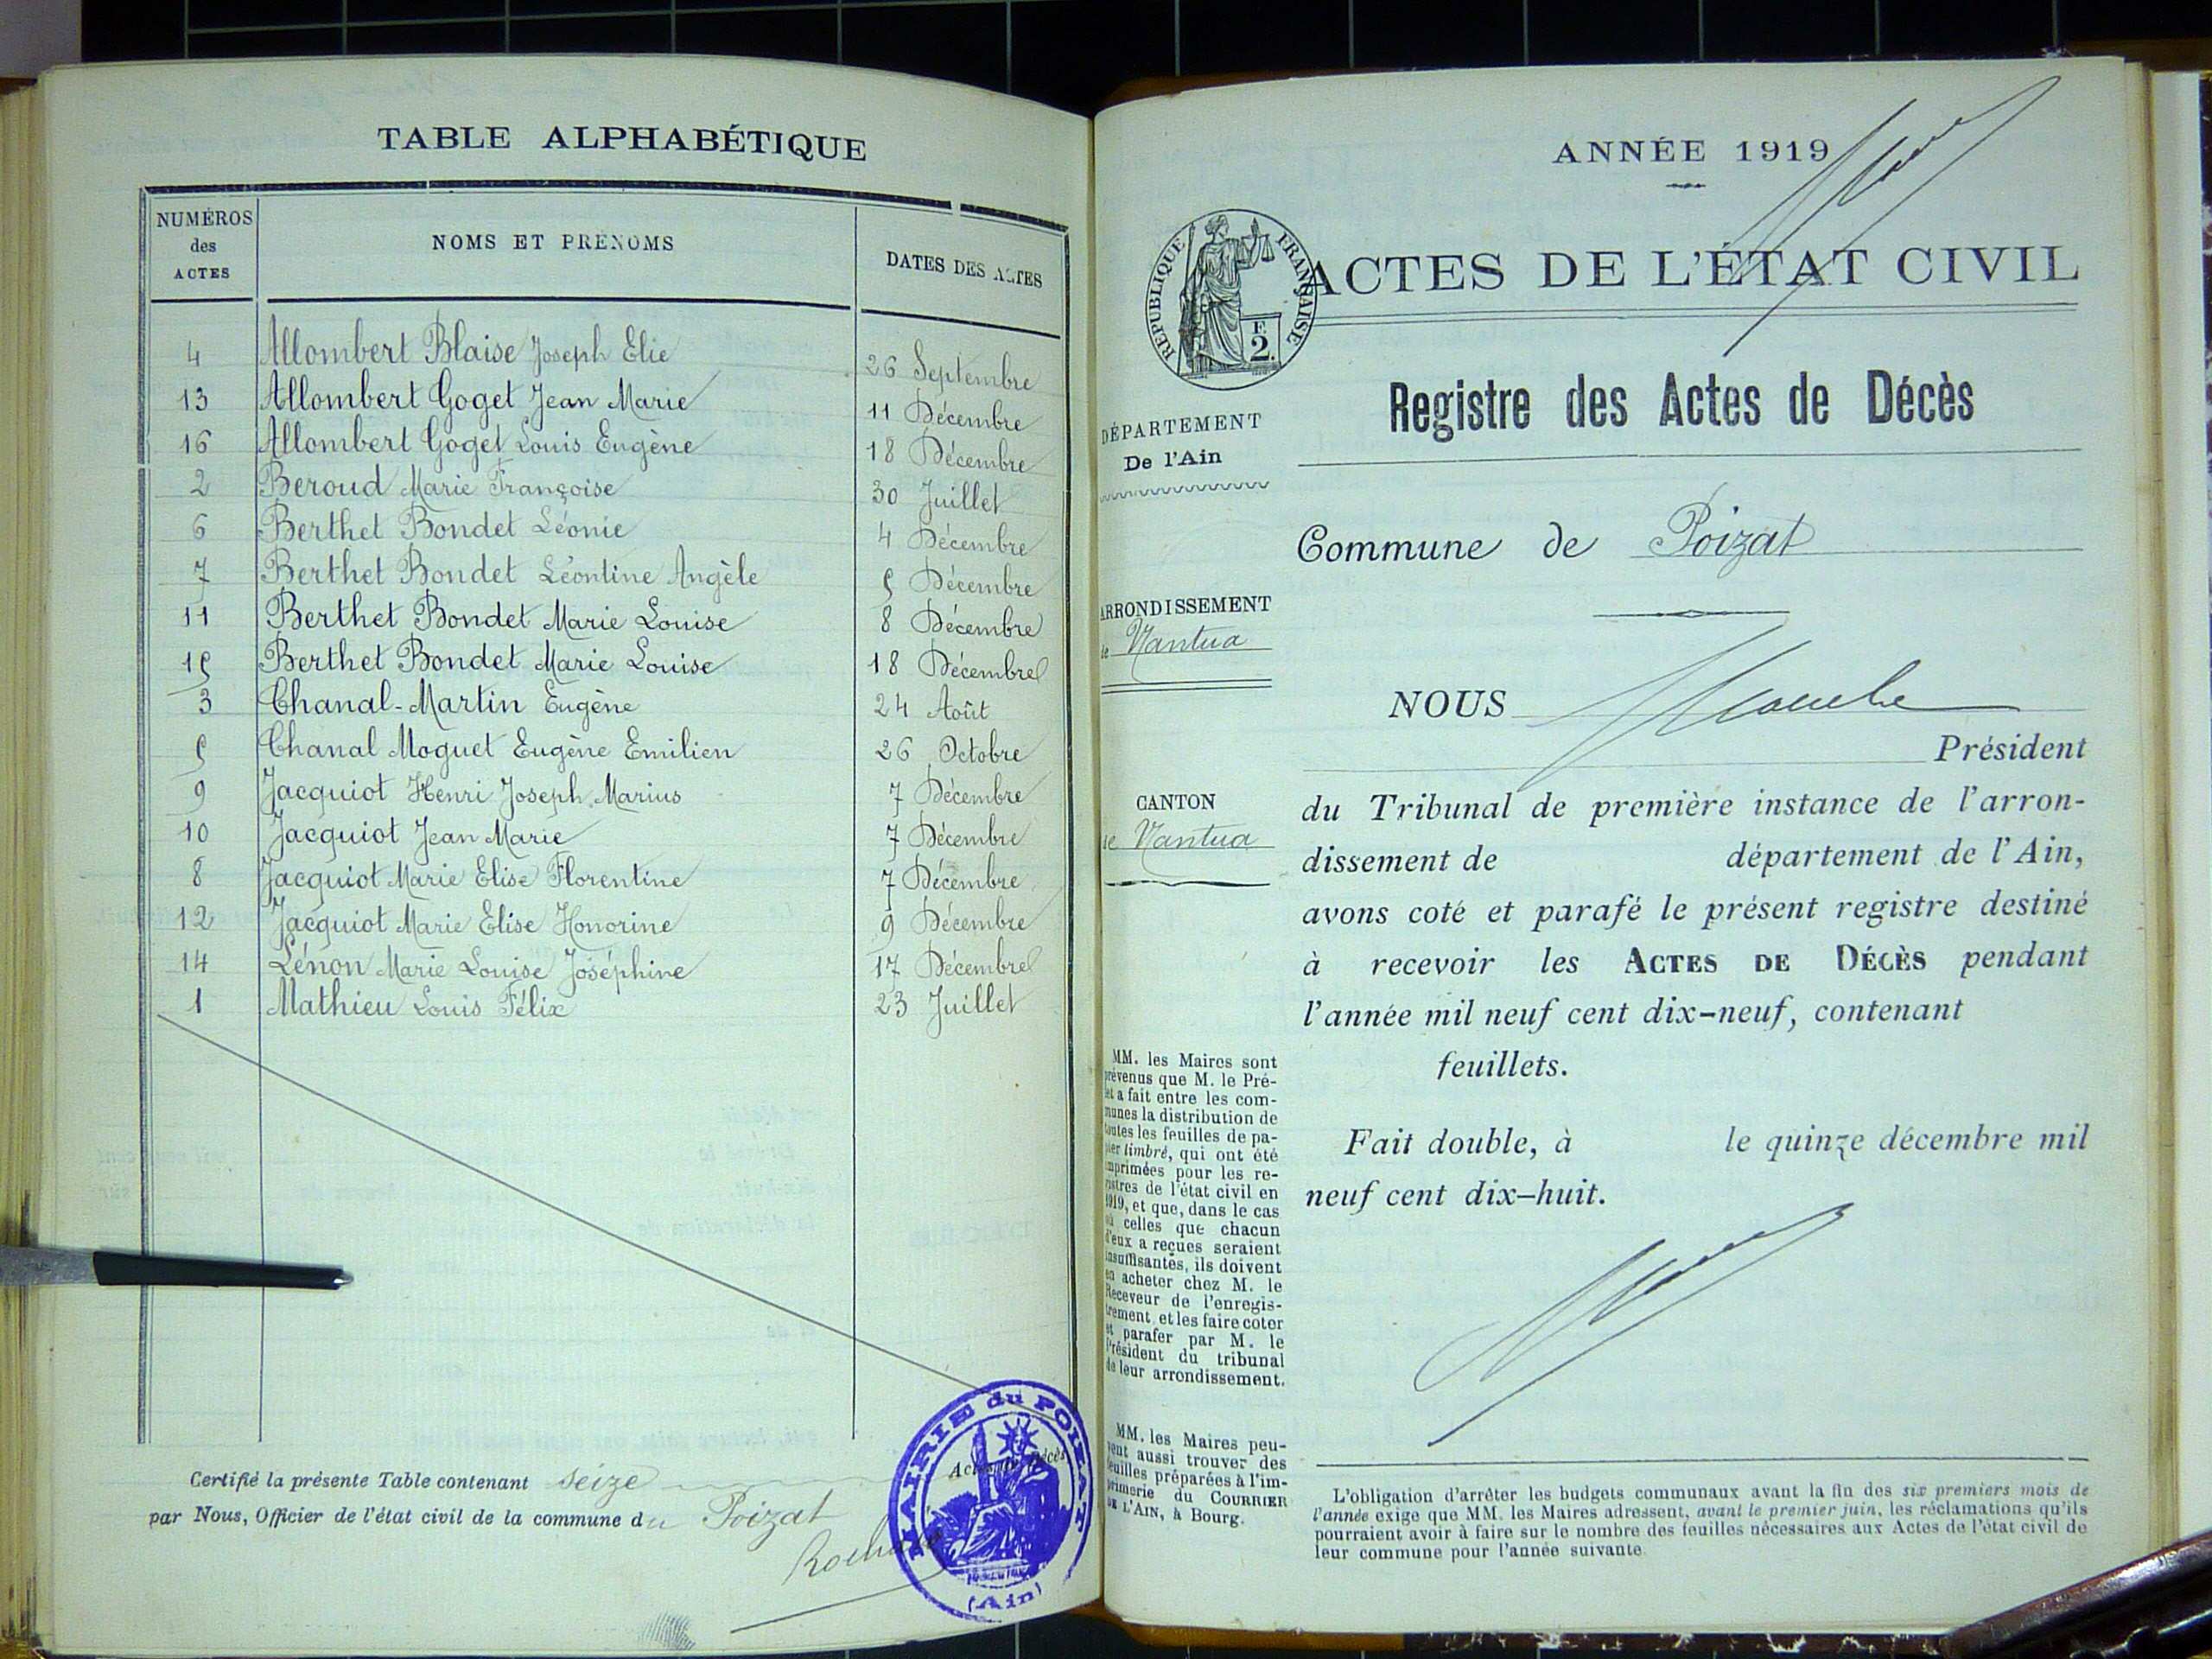 TABLE ALPHABÉTIQUE
NUMÉROS des ACTES
NOMS ET PRÉNOMS
DATES DES ACTES
4 Allombert Blaise Joseph Elie 26 Septembre
13 Allombert Goget Jean Marie 11 Décembre
16 Allombert Goget Louis Eugène 18 Décembre
2 Beroud Marie Françoise 30 Juillet
6 Berthet Bondet Léonie 4 Décembre
7 Berthet Bondet Léontine Angèle 5 Décembre
11 Berthet Bondet Marie Louise 8 Décembre
15 Berthet Bondet Marie Louise 18 Décembre
3 Chanal-Martin Eugène 24 Août
5 Chanal Moguet Eugène Emilien 26 Octobre
9 Jacquiot Henri Joseph Marius 7 Décembre
10 Jacquiot Jean Marie 7 Décembre
8 Jacquiot Marie Elise Florentine 7 Décembre
12 Jacquiot Marie Elise Honorine 9 Décembre
14 Lénon Marie Louise Joséphine 17 Décembre
1 Mathieu Louis Félix 23 Juillet
Certifié la présente Table contenant seize Actes de Décès
par Nous, Officier de l'état civil de la commune du Poizat
MAIRIE du POIZAT
(Ain)
ANNÉE 1919
RÉPUBLIQUE FRANÇAISE
F.
2.
ACTES DE L'ÉTAT CIVIL
Registre des Actes de Décès
DÉPARTEMENT
De l'Ain
Commune de Poizat
ARRONDISSEMENT
de Nantua
NOUS
Président
CANTON
de Nantua
du Tribunal de première instance de l'arron-
dissement de département de l'Ain,
avons coté et parafé le présent registre destiné
à recevoir les ACTES DE DÉCÈS pendant
l'année mil neuf cent dix-neuf, contenant
feuillets.
Fait double, à le quinze décembre mil
neuf cent dix-huit.
MM. les Maires sont
prévenus que M. le Pré-
fet a fait entre les com-
munes la distribution de
toutes les feuilles de pa-
pier timbré, qui ont été
imprimées pour les re-
gistres de l'état civil en
1919, et que, dans le cas
où celles que chacun
d'eux a reçues seraient
insuffisantes, ils doivent
en acheter chez M. le
Receveur de l'enregis-
trement et les faire coter
et parafer par M. le
Président du tribunal
de leur arrondissement.
MM. les Maires peu-
vent aussi trouver des
feuilles préparées à l'im-
primerie du COURRIER
DE L'AIN, à Bourg.
L'obligation d'arrêter les budgets communaux avant la fin des six premiers mois de
l'année exige que MM. les Maires adressent, avant le premier juin, les réclamations qu'ils
pourraient avoir à faire sur le nombre des feuilles nécessaires aux Actes de l'état civil de
leur commune pour l'année suivante.